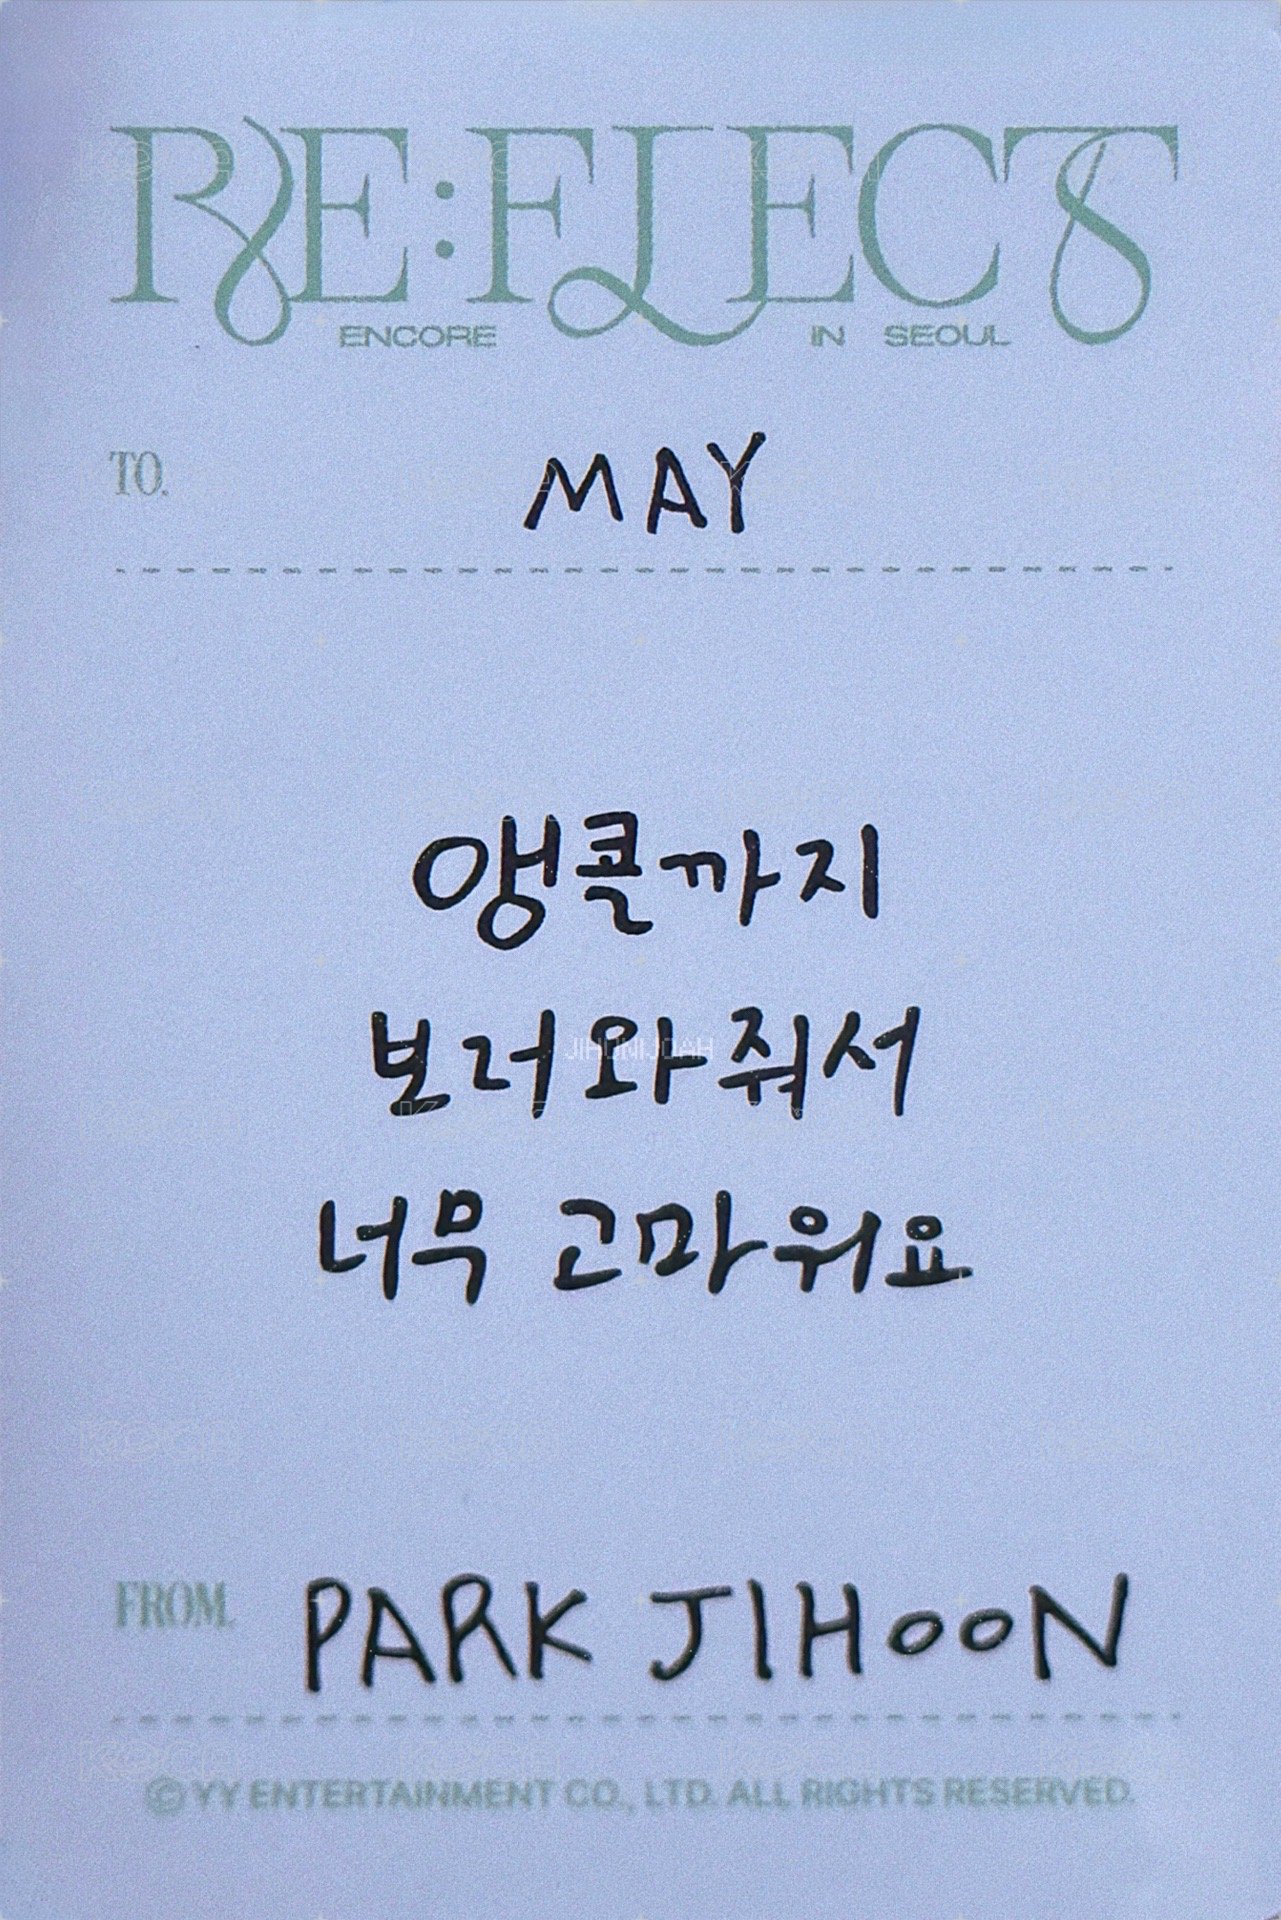 RE:FLECT
ENCORE IN SEOUL
TO. MAY
앵콜까지
보러와줘서
너무 고마워요
JIHUNIJOAH
FROM. PARK JIHOON
© YY ENTERTAINMENT CO., LTD. ALL RIGHTS RESERVED.